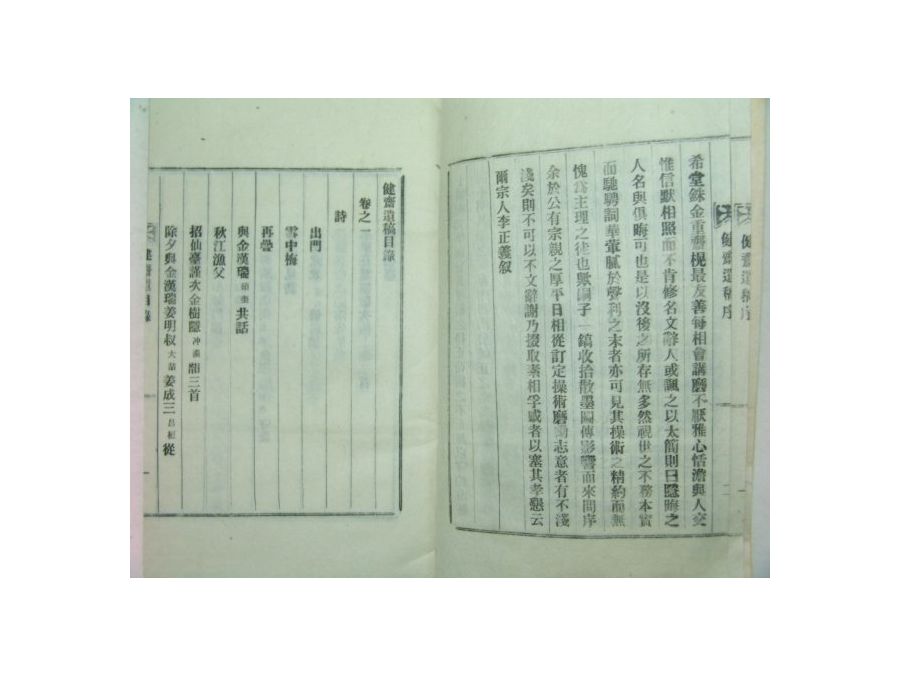 健齋遺稿序
健齋遺稿序 二
希堂銖金重齋榥最友善每相會講磨不厭雅心恬澹與人交
惟信默相照而不肯修名文辭人或諷之以太簡則曰隱晦之
人名與俱晦可也是以沒後之所存無多然視世之不務本實
而馳騁詞華葷膩於聲利之末者亦可見其操術之精約而無
愧爲主理之徒也歟嗣子一鎬收拾散墨圖傳影響而來問序
余於公有宗親之厚平日相從訂定操術磨勵志意者有不淺
淺矣則不可以不文辭謝乃掇取素相孚感者以塞其孝懇云
爾宗人李正義叙
健齋遺稿目錄
卷之一
詩
出門
雪中梅
再疊
與金漢瑞碩奎共話
秋江漁父
招仙臺謹次金樹隱冲漢韻三首
除夕與金漢瑞姜明叔大苗姜成三昌桓從
健齋目錄